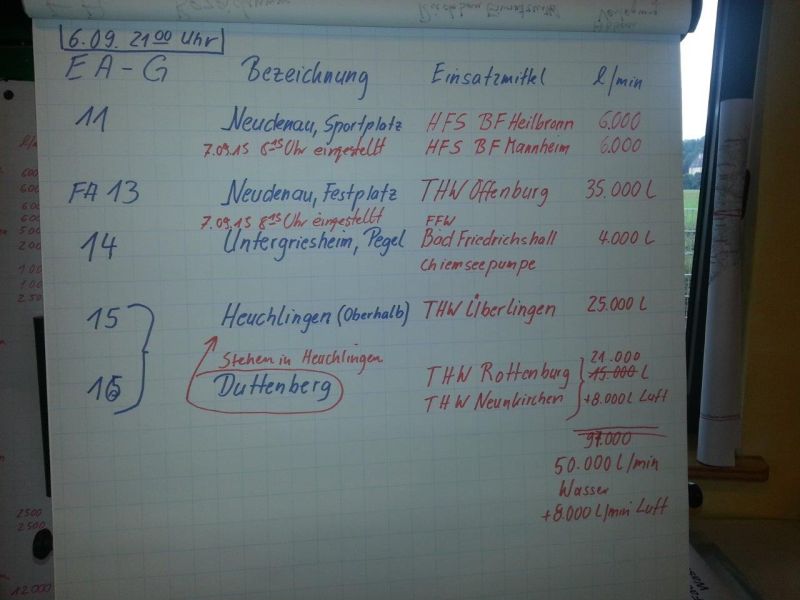 6.09. 21 00 Uhr
EA-G Bezeichnung Einsatzmittel l/min
11 Neudenau, Sportplatz HFS BF Heilbronn 6.000
7.09.15 8 15 Uhr eingestellt HFS BF Mannheim 6.000
FA 13 Neudenau, Festplatz THW Offenburg 35.000 L
7.09.15 8 15 Uhr eingestellt FFW
14 Untergriesheim, Pegel Bad Friedrichshall 4.000 L
Chiemseepumpe
15 Heuchlingen (Oberhalb) THW Überlingen 25.000 L
Stehen in Heuchlingen 21.000
16 Duttenberg THW Rottenburg 15.000 L
THW Neunkirchen +8.000 L Luft
91.000
50.000 L/min
Wasser
+8.000 L/min Luft
2500
2500
12000